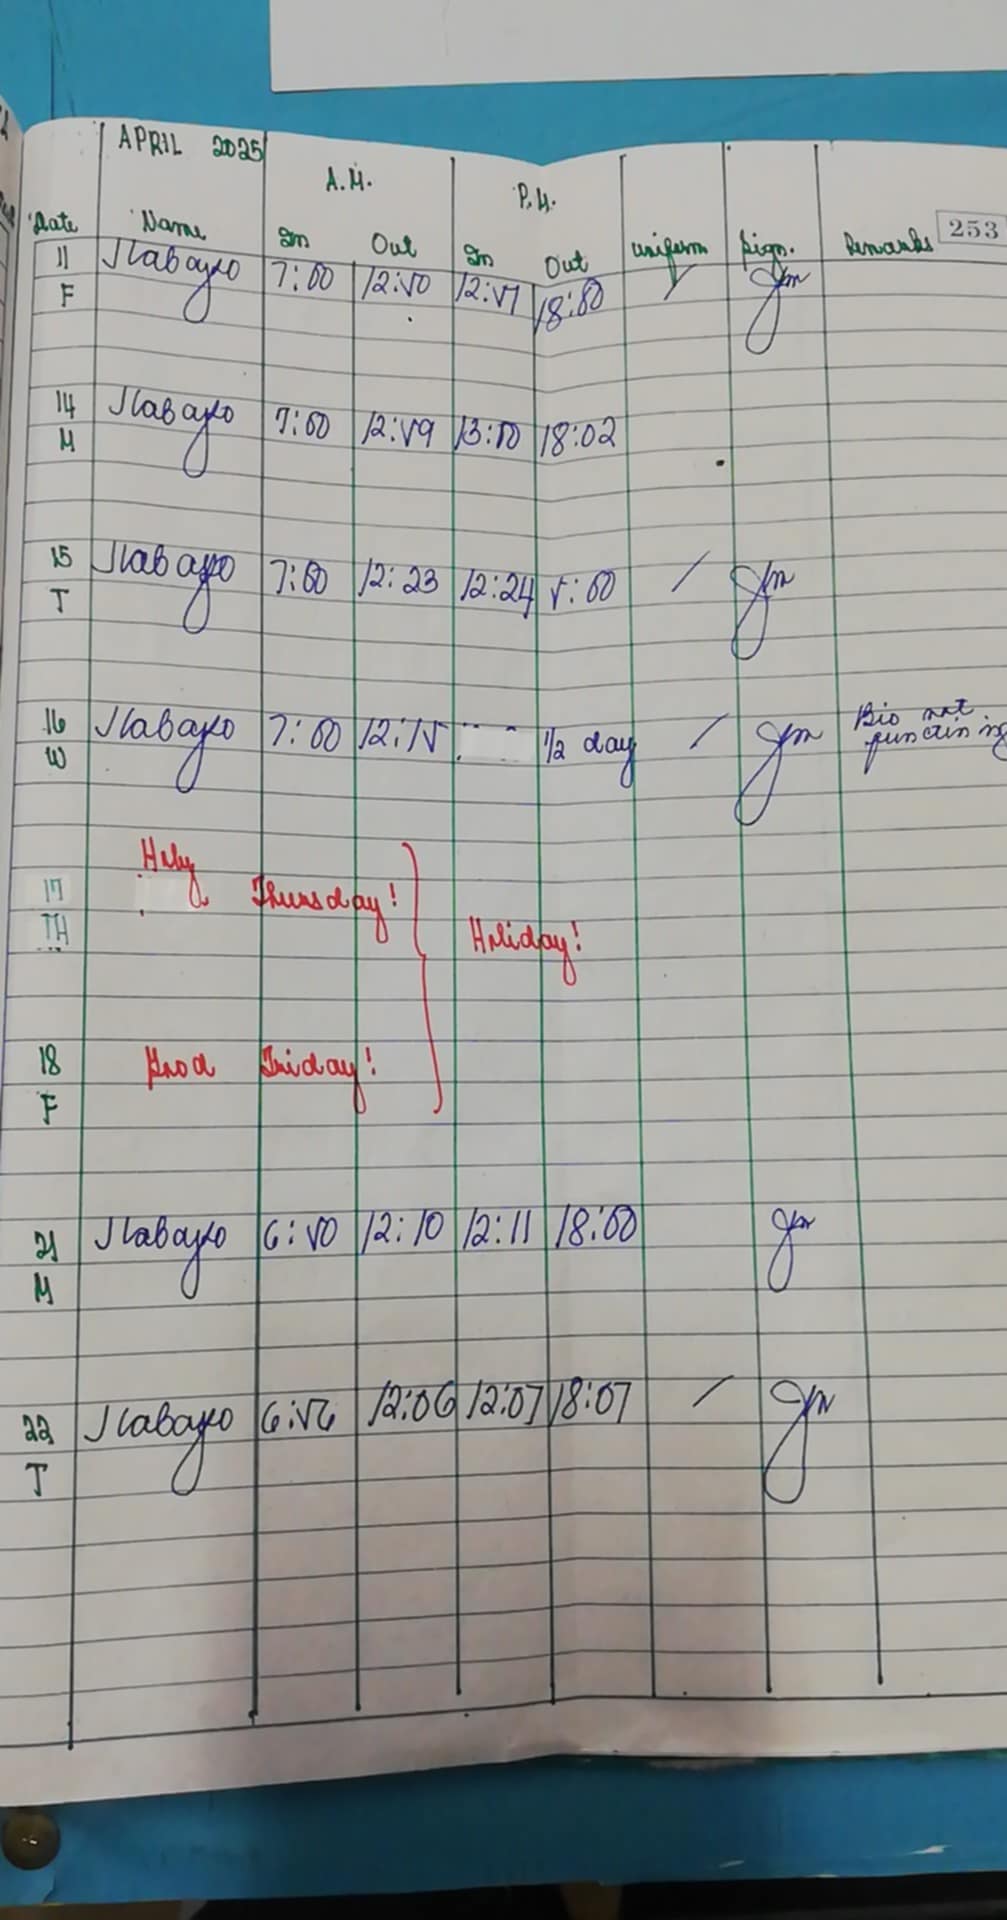 APRIL 2025
A.M. P.M.
253
Date Name In Out In Out Uniform Sign. Remarks
11 7:00 12:50 12:51
F
14 7:00 12:59 13:00 18:02
M
15 7:00 12:23 12:24 5:00 /
T
16 7:00 12:15 1/2 day / Bio not
W
Holy
17 Thursday!
TH Holiday!
18 Good Friday!
F
21 6:50 12:10 12:11 18:00
M
22 6:56 12:06 12:07 18:07 /
T